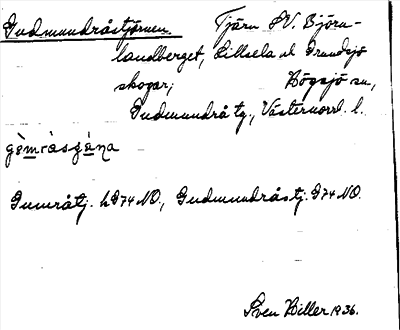 Gudmundråtjärnen. Tjärn SV. Björn-
landberget, Lillsela o Grundsjö
skogar; Högsjö sn,
Gudmundrå tg., Västernorrl. l.
Gumråtj. h D74 NO, Gudmundråstj. D74 NO.
Sven Hiller 1936.